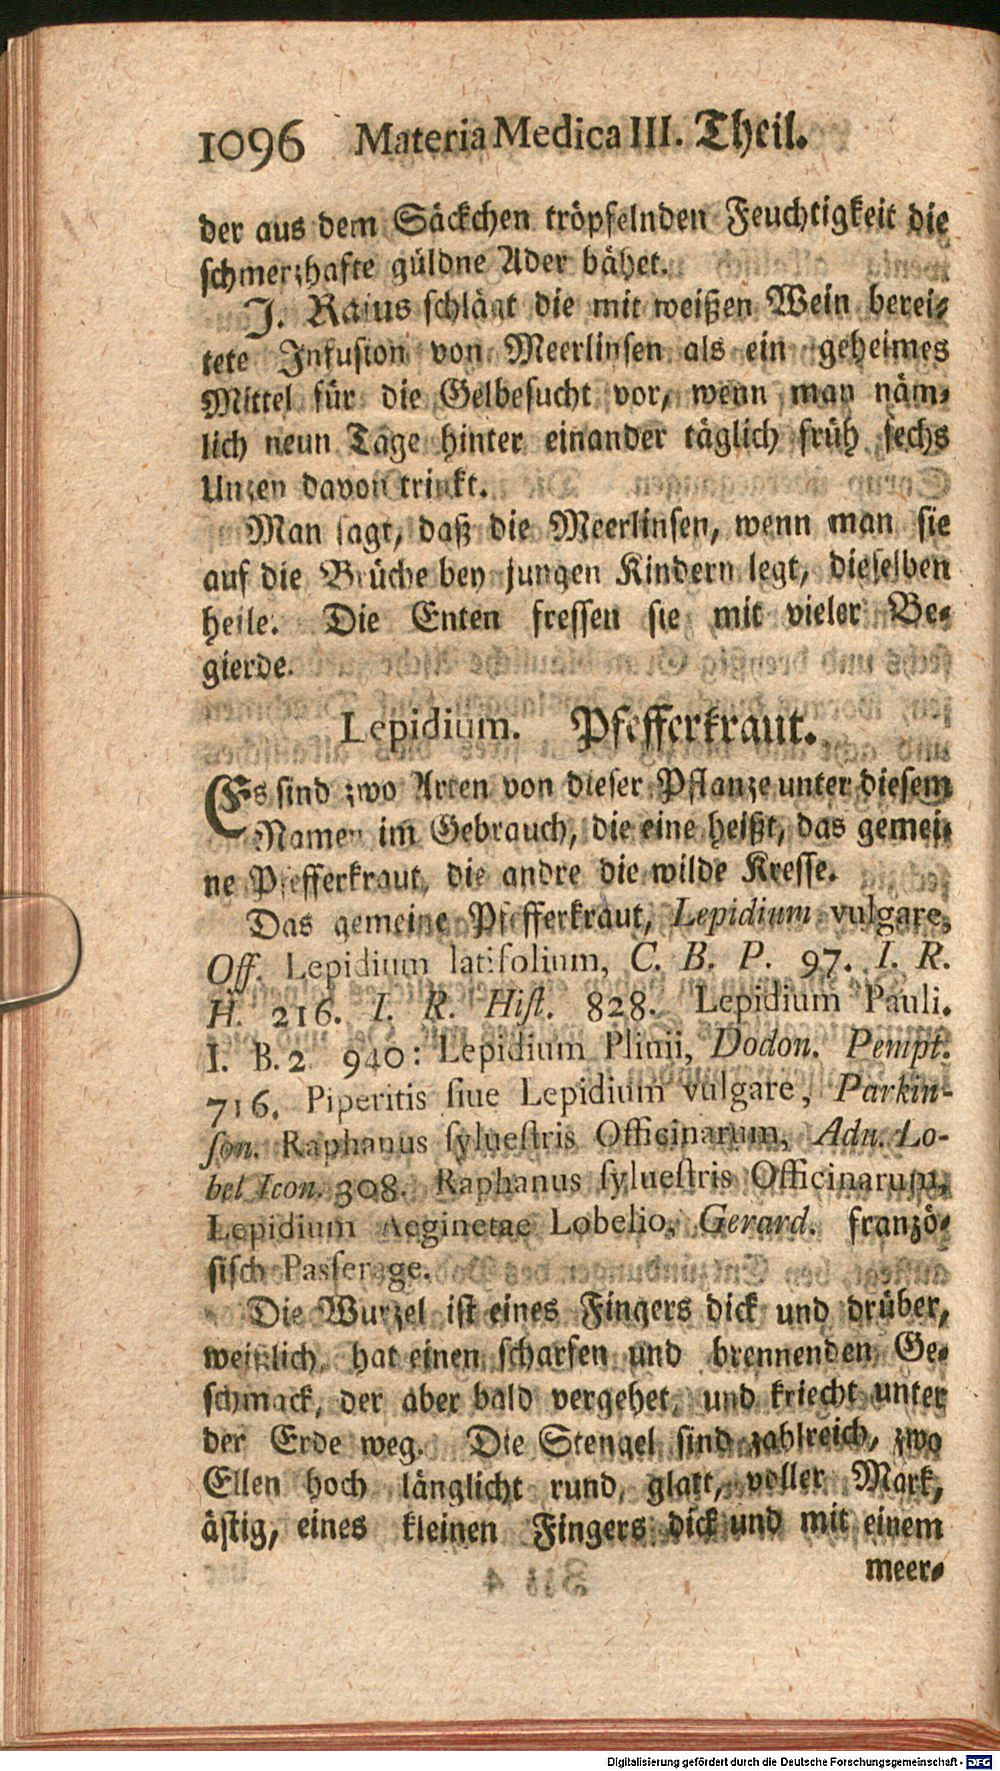 1096 Materia Medica III. Theil.
der aus dem Säckchen tröpfelnden Feuchtigkeit die
schmerzhafte güldne Ader bähet.
J. Raius schlägt die mit weißen Wein berei-
tete Infusion von Meerlinsen als ein geheimes
Mittel für die Gelbesucht vor, wenn man näm-
lich neun Tage hinter einander täglich früh sechs
Unzen davon trinkt.
Man sagt, daß die Meerlinsen, wenn man sie
auf die Brüche bey jungen Kindern legt, dieselben
heile. Die Enten fressen sie mit vieler Be-
gierde.
Lepidium. Pfefferkraut.
Es sind zwo Arten von dieser Pflanze unter diesem
Namen im Gebrauch, die eine heißt, das gemei-
ne Pfefferkraut, die andre die wilde Kresse.
Das gemeine Pfefferkraut, Lepidium vulgare,
Off. Lepidium latifolium, C. B. P. 97. I. R.
H. 216. I. R. Hiſt. 828. Lepidium Pauli.
I. B. 2 940: Lepidium Plinii, Dodon. Pempt.
716. Piperitis ſiue Lepidium vulgare, Parkin-
ſon. Raphanus ſylueſtris Officinarum, Adu. Lo-
bel Icon. 308. Raphanus ſylueſtris Officinarum,
Lepidium Aeginetae Lobelio, Gerard. franzö-
sisch Paſſerage.
Die Wurzel ist eines Fingers dick und drüber,
weißlich, hat einen scharfen und brennenden Ge-
schmack, der aber bald vergehet, und kriecht unter
der Erde weg. Die Stengel sind zahlreich, zwo
Ellen hoch länglicht rund, glatt, voller Mark,
ästig, eines kleinen Fingers dick und mit einem
meer-
Digitalisierung gefördert durch die Deutsche Forschungsgemeinschaft - DFG